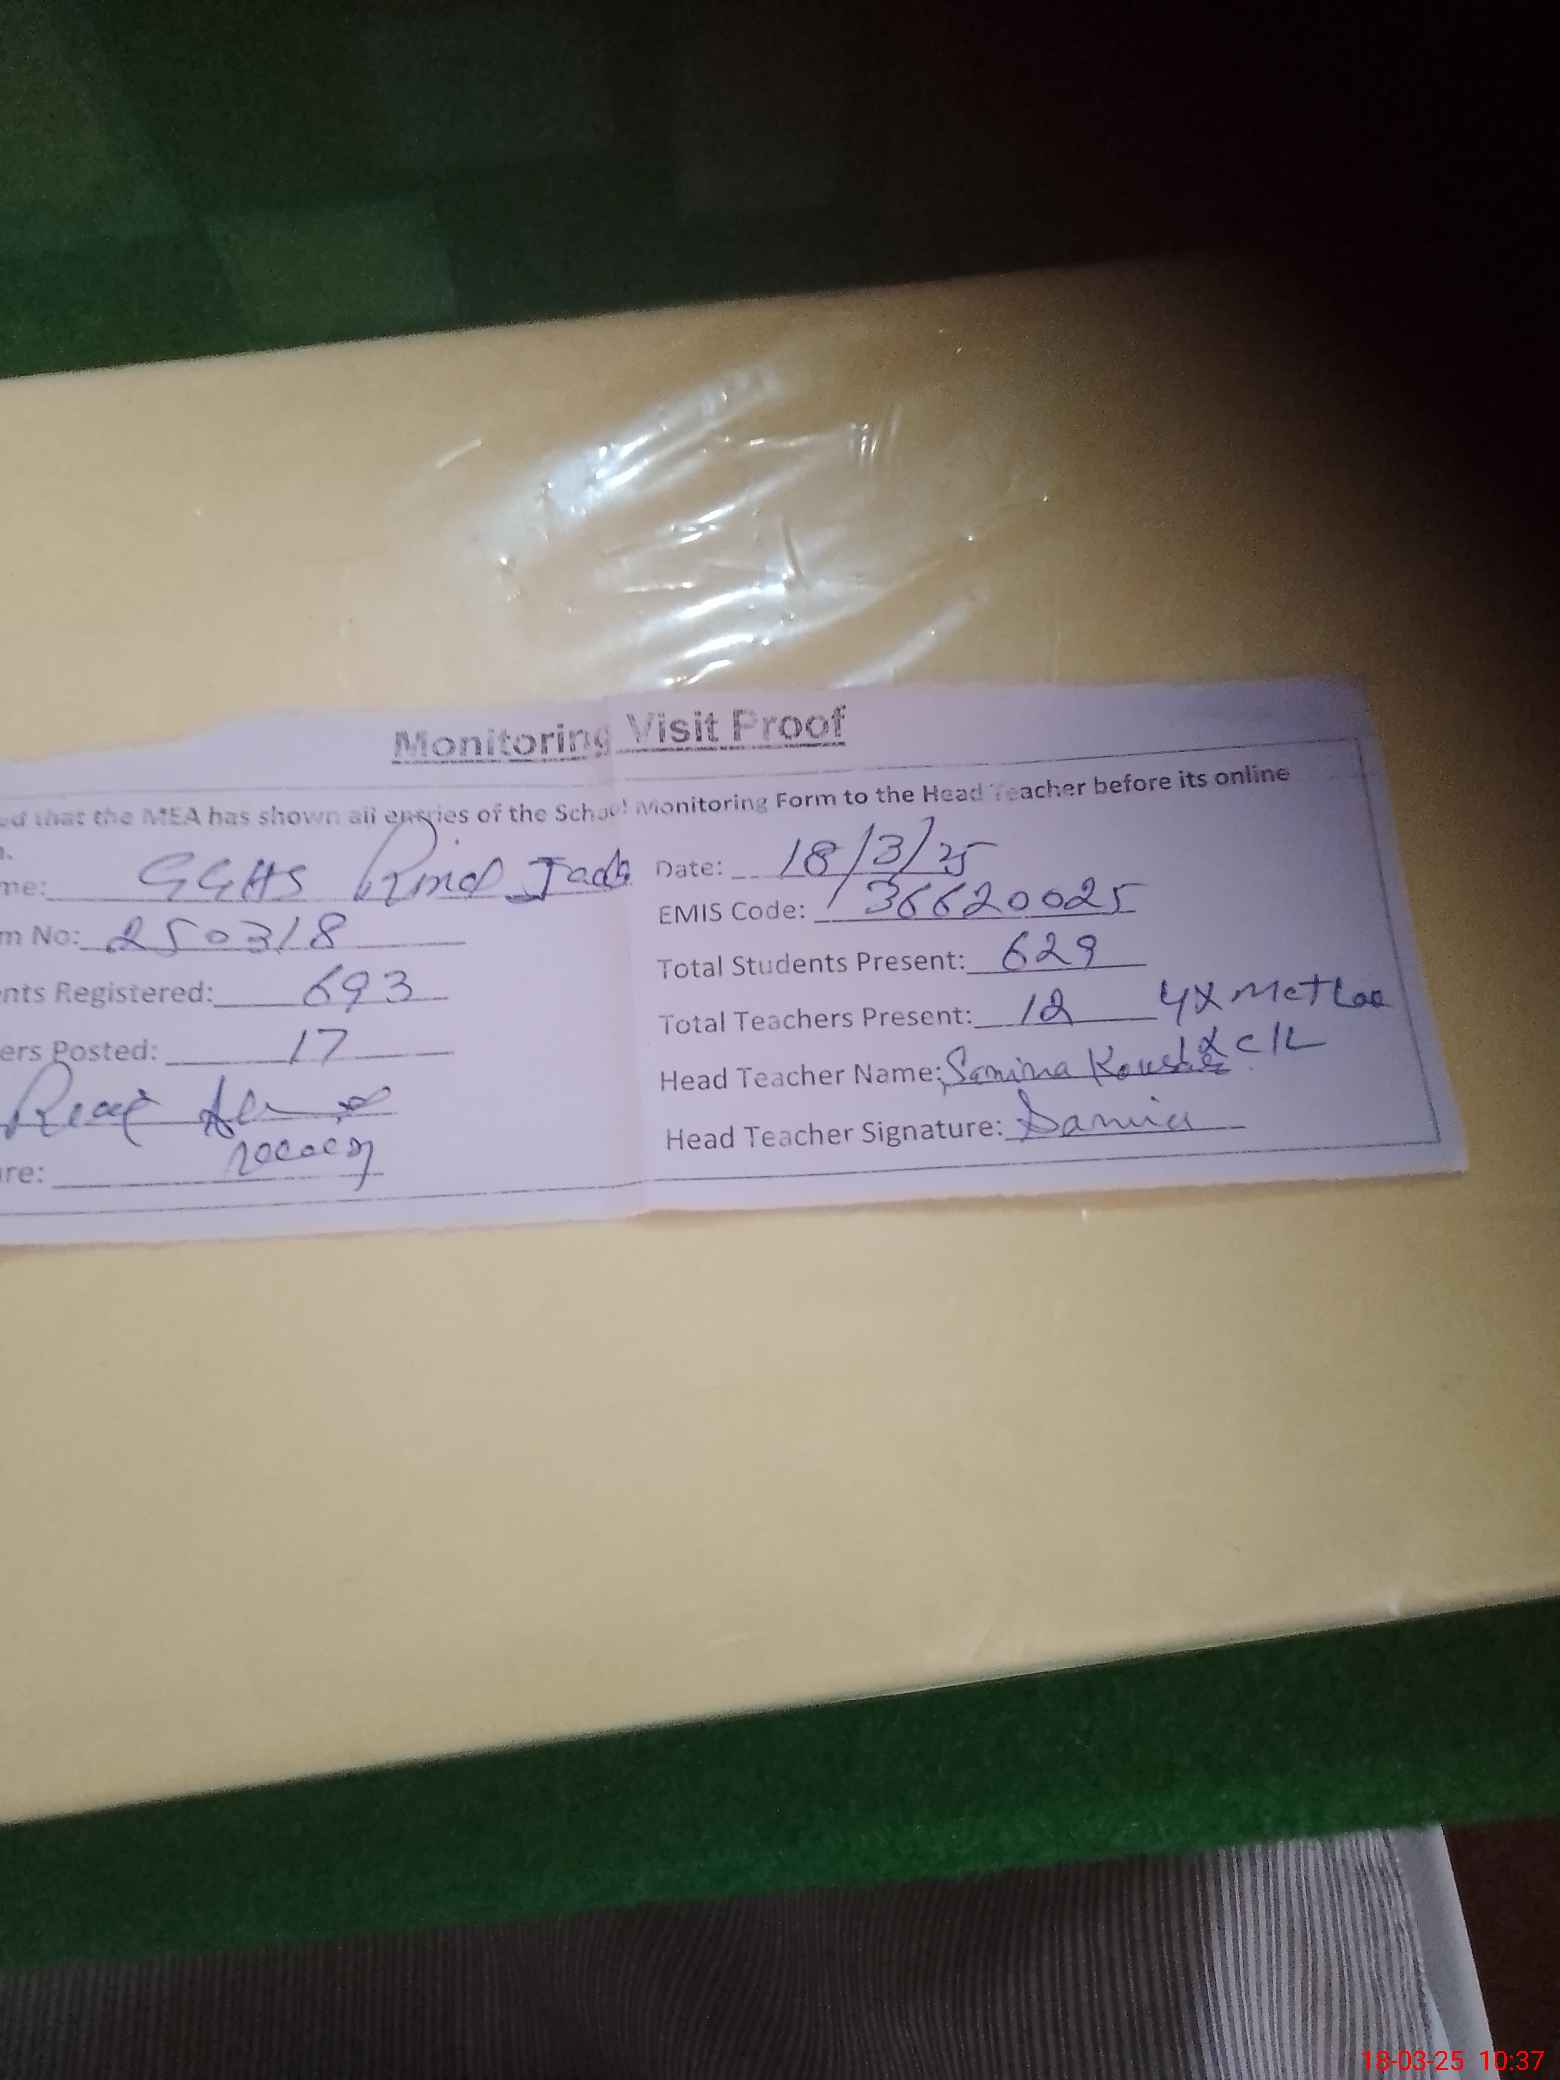 Monitoring Visit Proof
ed that the MEA has shown all entries of the School Monitoring Form to the Head Teacher before its online
n.
me: GGHS Rind Jada Date: 18/3/25
m No: 250318 EMIS Code: 36620025
nts Registered: 693 Total Students Present: 629
ers Posted: 17 Total Teachers Present: 12 4x
Head Teacher Name: Samina Kousar
ure: Head Teacher Signature: Samina
18-03-25 10:37